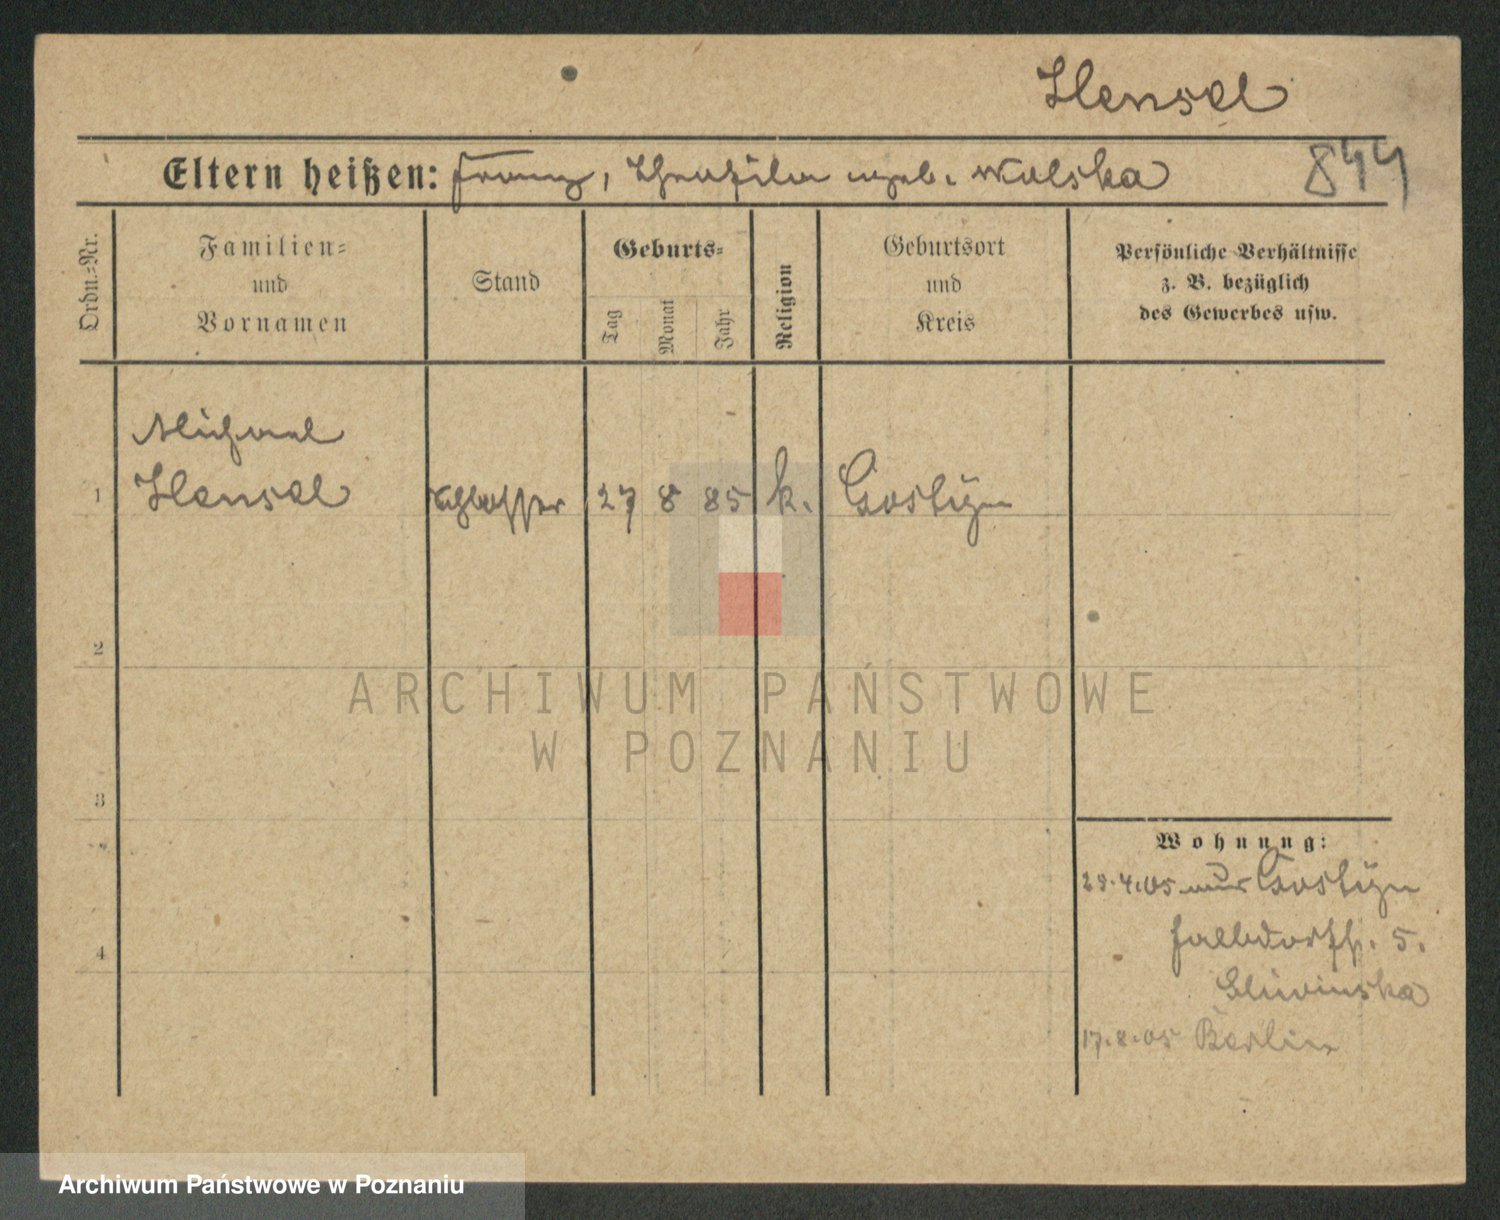 Hensel
Eltern heißen: Franz, Theofila geb. Wolska
844
Ordn.=Nr.
Familien=
und
Vornamen
Stand
Geburts=
Tag
Monat
Jahr
Religion
Geburtsort
und
Kreis
Persönliche Verhältnisse
z. B. bezüglich
des Gewerbes usw.
Michael
1 Hensel Schlosser 27 8 85 k. Gostyn
2
3
4
Wohnung:
29.4.05 aus Gostyn
Halbdorfstr. 5.
Sliwinska
17.8.05 Berlin
ARCHIWUM PAŃSTWOWE
W POZNANIU
Archiwum Państwowe w Poznaniu